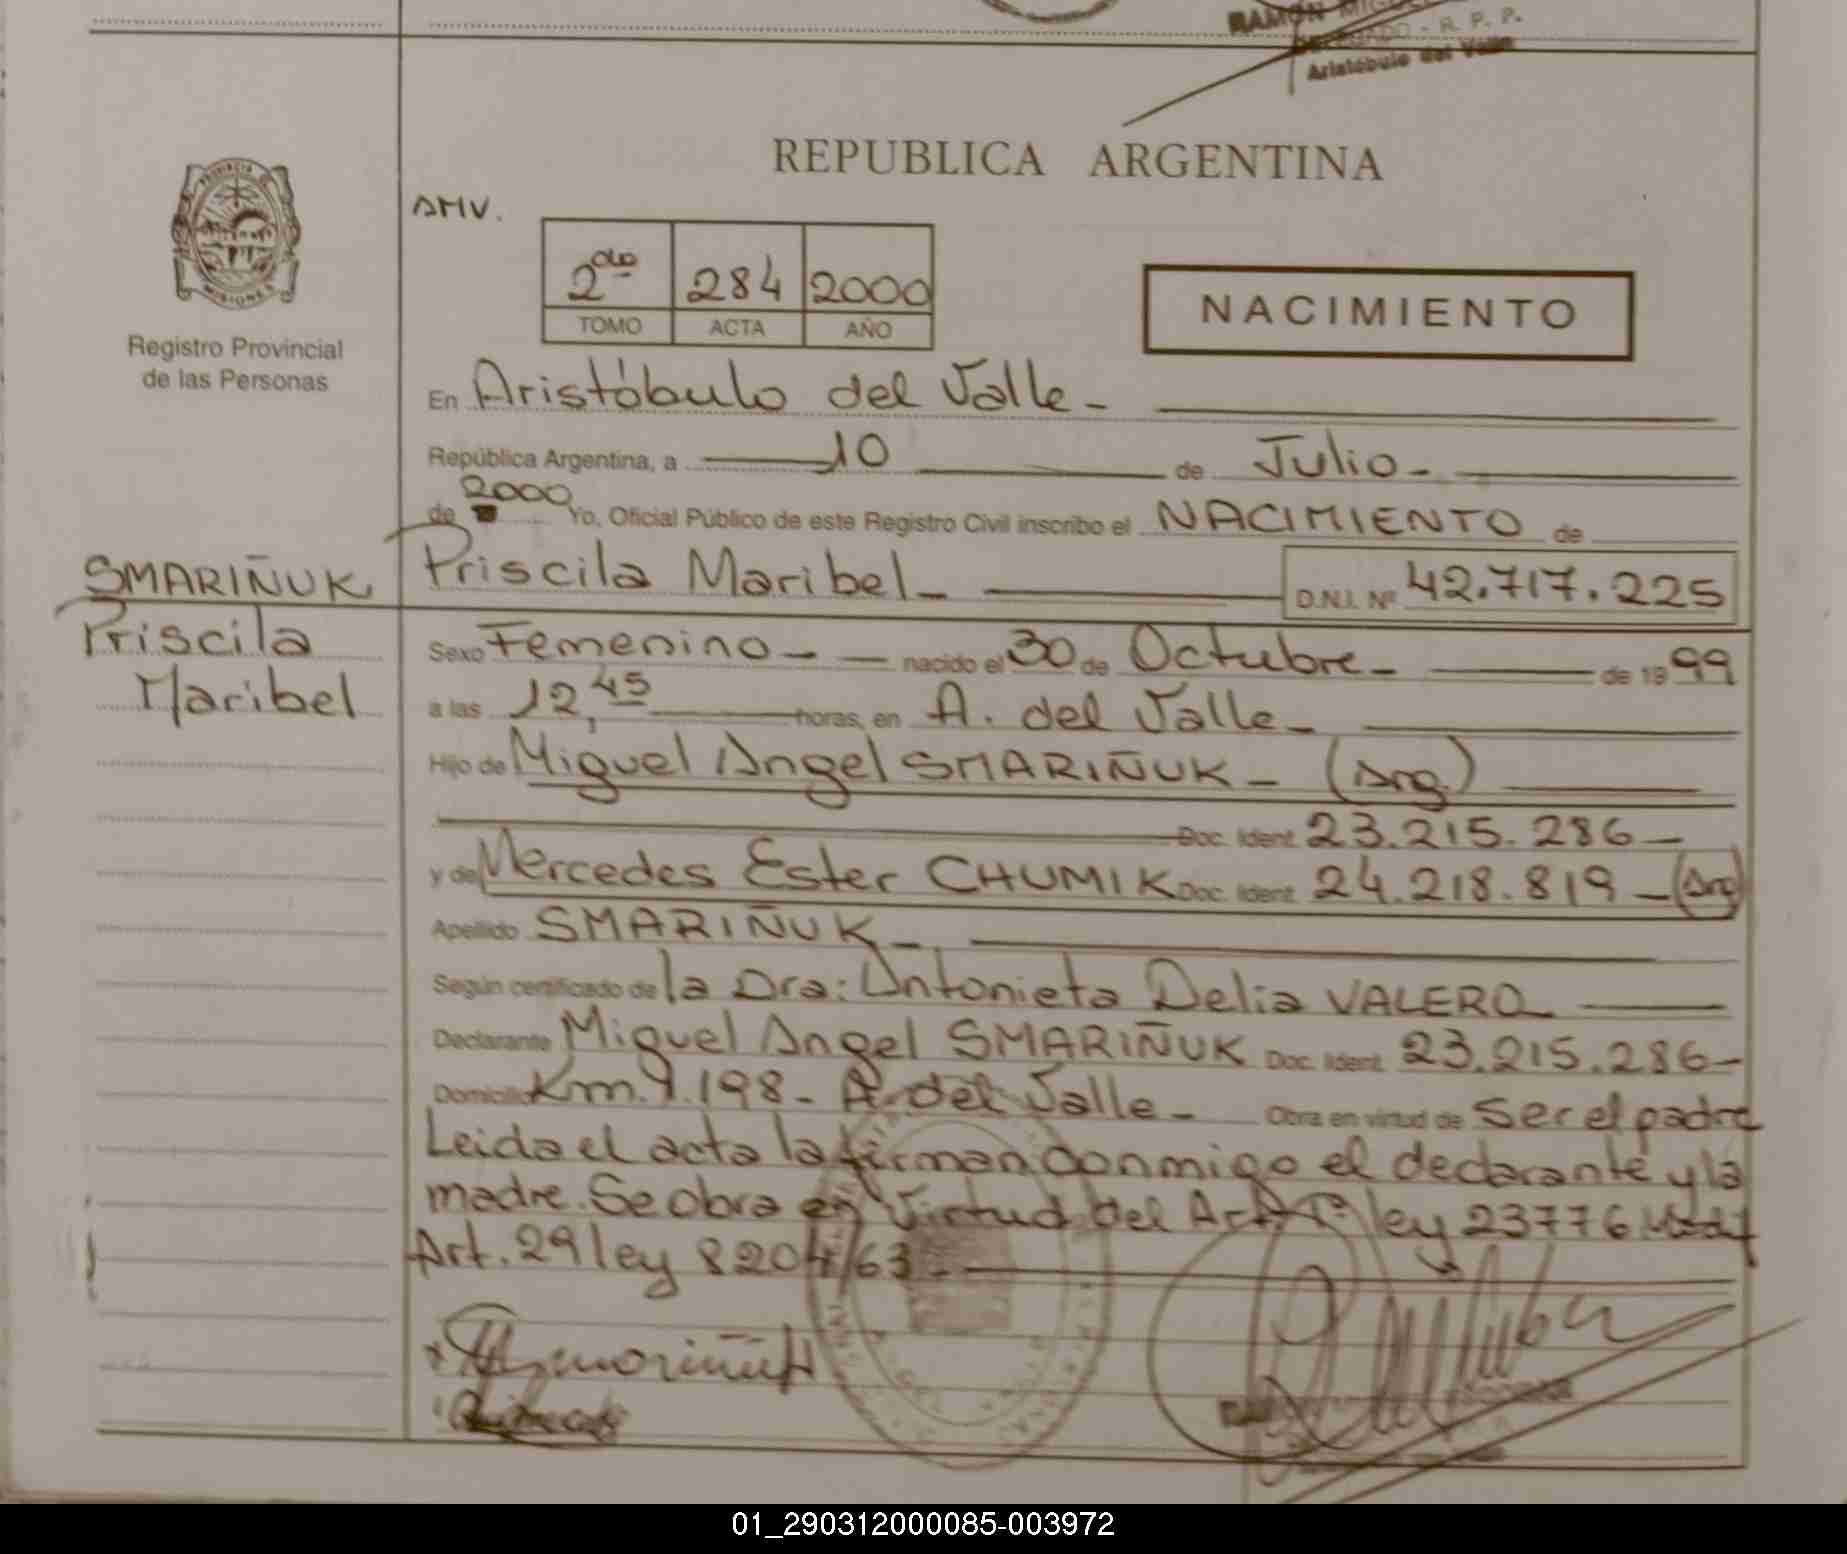 RAMON
R. P. P.
Aristóbulo del Valle
REPUBLICA ARGENTINA
PROVINCIA DE
MISIONES
Registro Provincial
de las Personas
AMV.
2do 284 2000
TOMO ACTA AÑO
NACIMIENTO
En Aristóbulo del Valle -
República Argentina, a 10 de Julio -
de 2000 Yo, Oficial Público de este Registro Civil inscribo el NACIMIENTO de
SMARIÑUK,
Priscila
Maribel
Priscila Maribel - D.N.I. Nº 42.717.225
Sexo Femenino - nacido el 30 de Octubre - de 1999
a las 12,45 horas, en A. del Valle -
Hijo de Miguel Angel SMARIÑUK - (Arg.)
Doc. Ident. 23.215.286 -
y de Mercedes Ester CHUMIK Doc. Ident. 24.218.819 - (Arg)
Apellido SMARIÑUK -
Según certificado de la Dra: Antonieta Delia VALERO
Declarante Miguel Angel SMARIÑUK Doc. Ident. 23.215.286 -
Domicilio Km. 1.198 - A. del Valle - Obra en virtud de ser el padre
Leida el acta la firman conmigo el declarante y la
madre. Se obra en Virtud del Art. 1º ley 23776 Modif
Art. 29 ley 8204/63 -
01_290312000085-003972